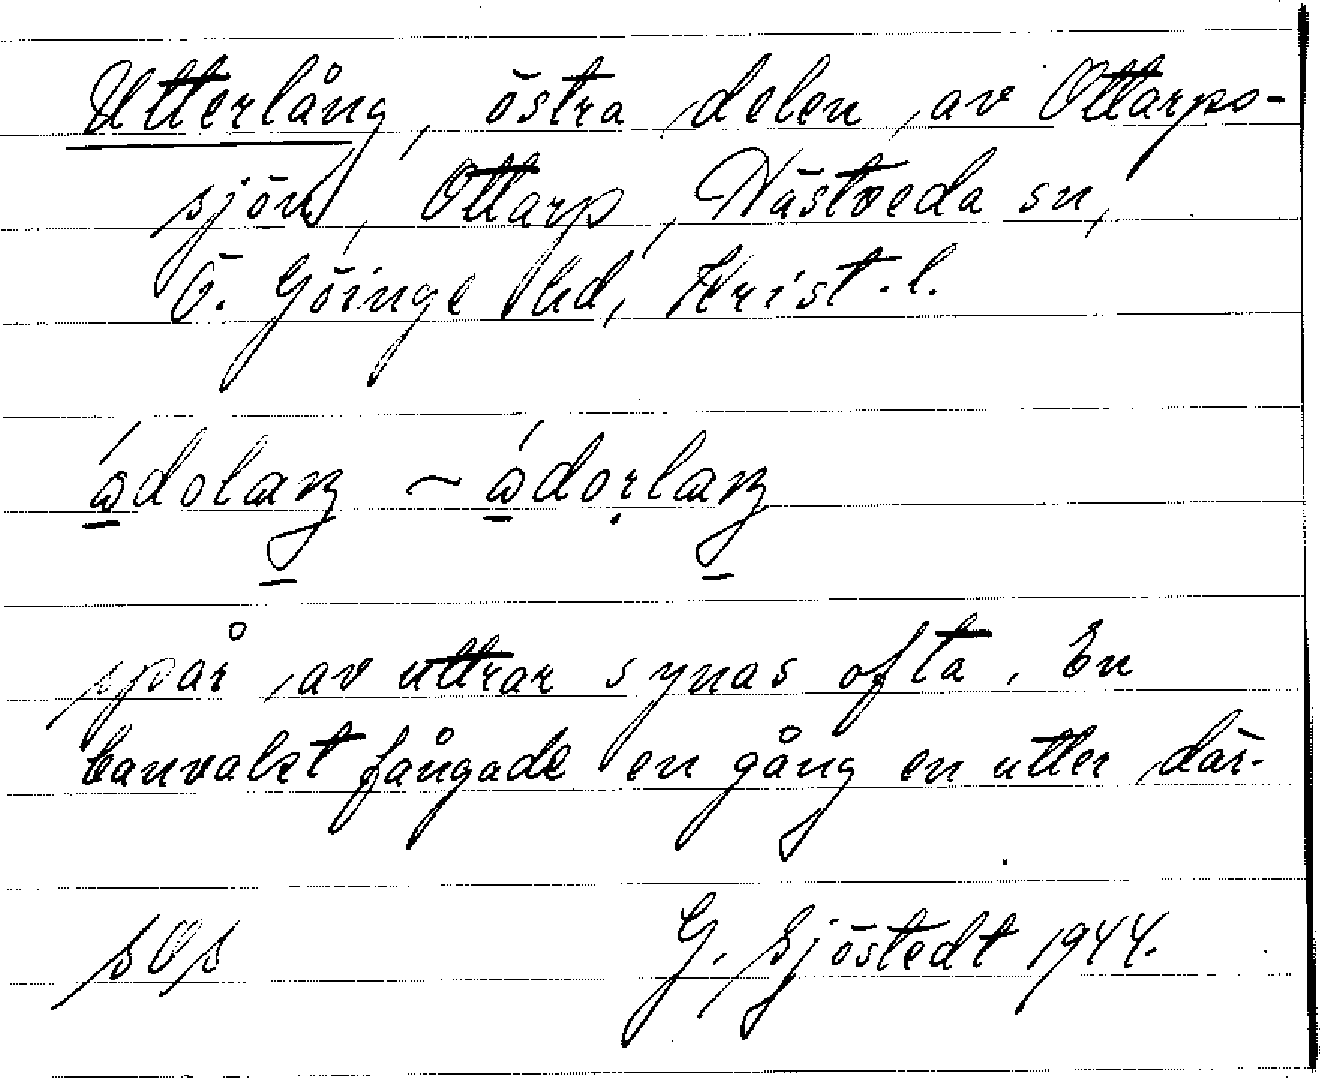 Utterlång, östra delen av Ottarps-
sjön, Ottarp, Västveda sn,
Ö. Göinge hd, Krist. l.
spår av uttrar synas ofta. En
banvakt fångade en gång en utter där.
G. Sjöstedt 1944.